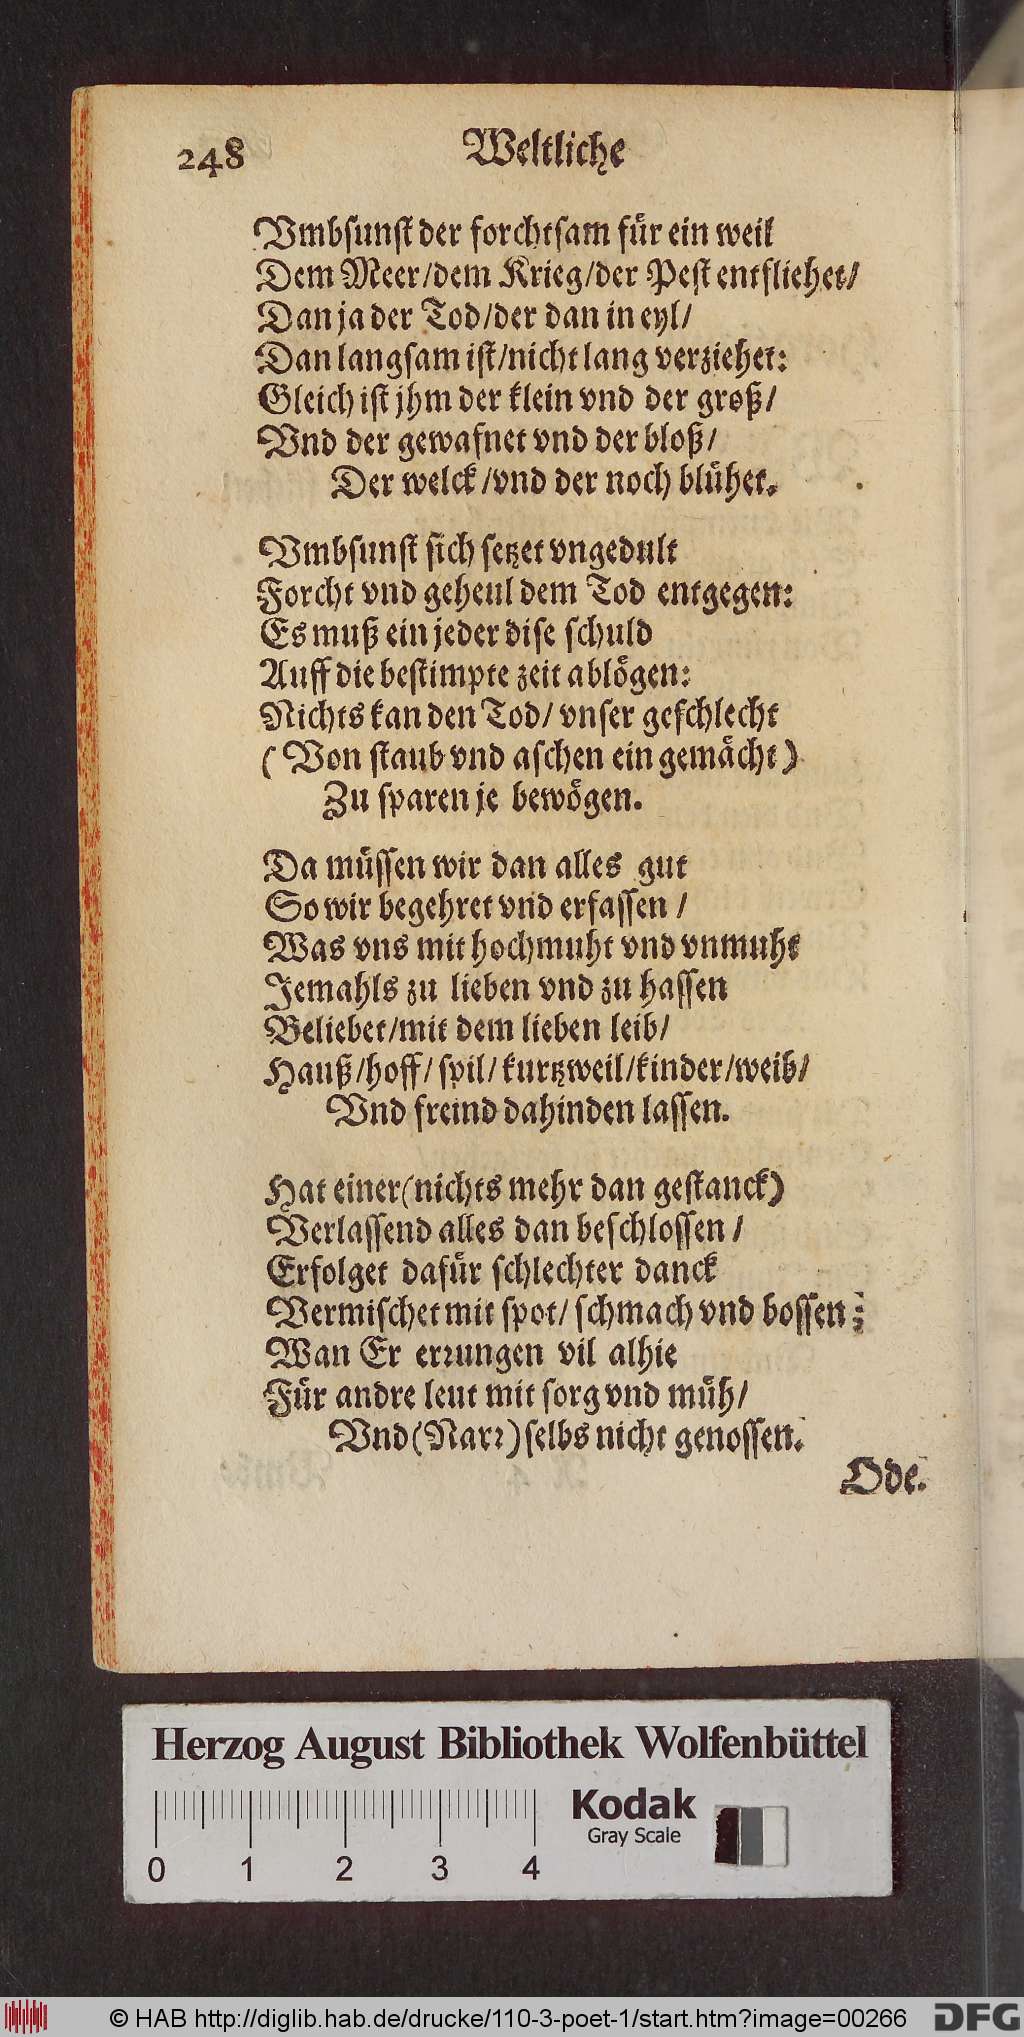 248 Weltliche
Vmbsunst der forchtsam für ein weil
Dem Meer/dem Krieg/der Pest entfliehet/
Dan ja der Tod/der dan in eyl/
Dan langsam ist/nicht lang verziehet:
Gleich ist jhm der klein vnd der groß/
Vnd der gewafnet vnd der bloß/
Der welck/vnd der noch blühet.
Vmbsunst sich setzet vngedult
Forcht vnd geheul dem Tod entgegen:
Es muß ein jeder dise schuld
Auff die bestimpte zeit ablögen:
Nichts kan den Tod/ vnser geschlecht
(Von staub vnd aschen ein gemächt)
Zu sparen je bewögen.
Da müssen wir dan alles gut
So wir begehret vnd erfassen /
Was vns mit hochmuht vnd vnmuht
Jemahls zu lieben vnd zu hassen
Beliebet/mit dem lieben leib/
Hauß/hoff/ spil/ kurtzweil/kinder/weib/
Vnd freind dahinden lassen.
Hat einer (nichts mehr dan gestanck)
Verlassend alles dan beschlossen /
Erfolget dafür schlechter danck
Vermischet mit spot/ schmach vnd bossen;
Wan Er errungen vil alhie
Für andre leut mit sorg vnd müh/
Vnd (Narr) selbs nicht genossen.
Ode.
Herzog August Bibliothek Wolfenbüttel
Kodak
Gray Scale
0 1 2 3 4
© HAB http://diglib.hab.de/drucke/110-3-poet-1/start.htm?image=00266
DFG